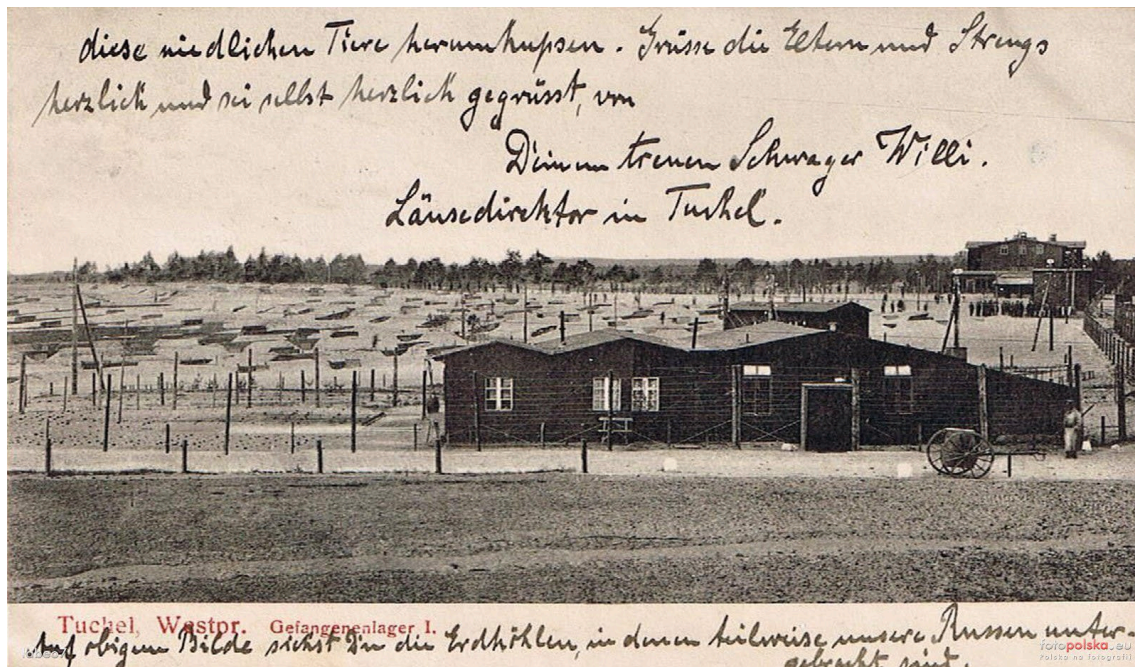 diese niedlichen Tiere herumhupsen. Grüsse die Eltern und Strengs
herzlich und sei selbst herzlich gegrüsst, von
Deinem treuen Schwager Willi.
Läusedirektor in Tuchel.
Tuchel, Westpr. Gefangenenlager I.
Auf obigem Bilde siehst Du die Erdhöhlen, in denen teilweise unsere Russen unter-
gebracht sind.
fotopolska.eu
Polska na fotografii